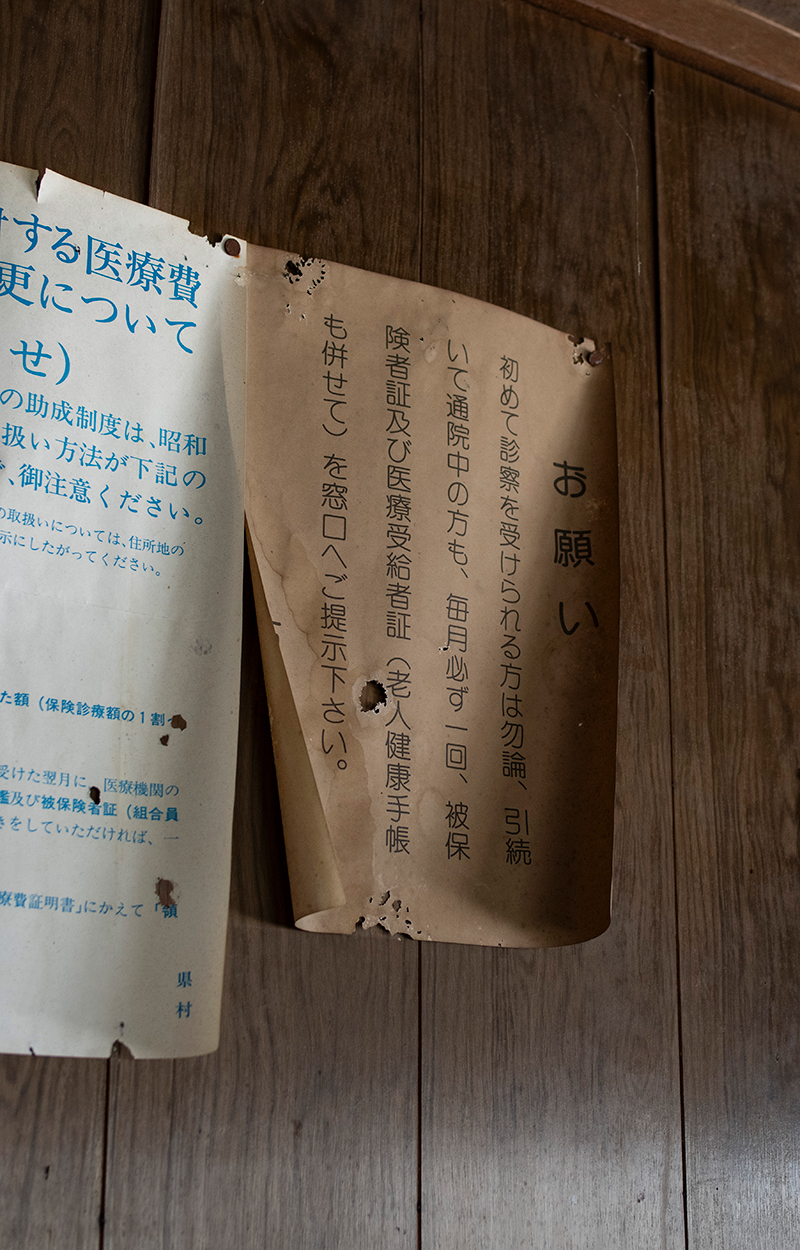 お願い
初めて診察を受けられる方は勿論、引続
いて通院中の方も、毎月必ず一回、被保
険者証及び医療受給者証（老人健康手帳
も併せて）を窓口へご提示下さい。
する医療費
更について
せ)
の助成制度は、昭和
扱い方法が下記の
、御注意ください。
の取扱いについては、住所地の
示にしたがってください。
た額（保険診療額の1割
受けた翌月に、医療機関の
及び被保険者証（組合員
きをしていただければ、一
療費証明書」にかえて「領
県
村